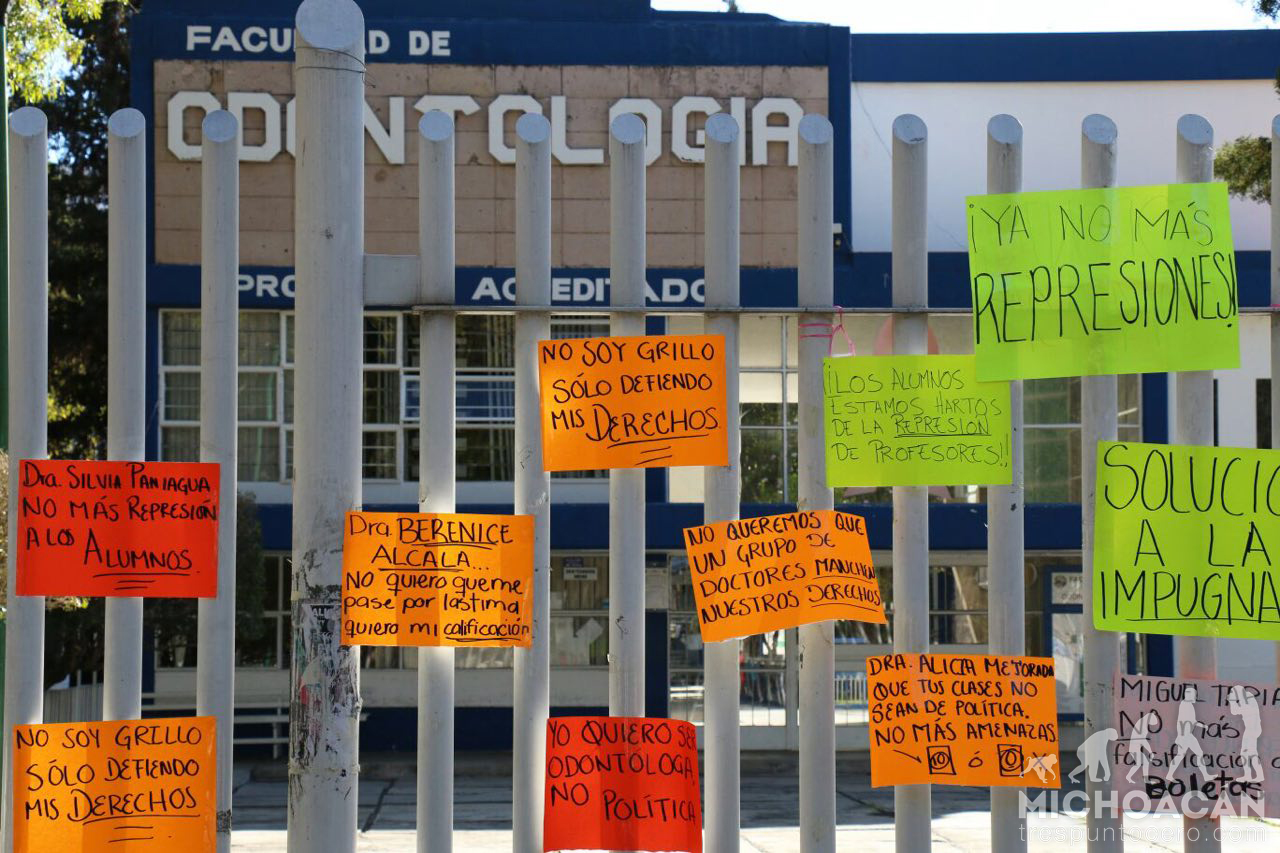 FACULTAD DE
ODONTOLOGIA
ACREDITADO
¡YA NO MÁS
REPRESIONES!
NO SOY GRILLO
SÓLO DEFIENDO
MIS DERECHOS
¡LOS ALUMNOS
ESTAMOS HARTOS
DE LA REPRESIÓN
DE PROFESORES!!
Dra. SILVIA PANIAGUA
NO MÁS REPRESIÓN
A LOS ALUMNOS.
Dra. BERENICE
ALCALA...
NO quiero que me
pase por lastima
quiero mi calificación
NO QUEREMOS QUE
UN GRUPO DE
DOCTORES MANCHEN
NUESTROS DERECHOS
SOLUCIO
A LA
IMPUGNA
DRA. ALICIA MEJORADA
QUE TUS CLASES NO
SEAN DE POLÍTICA.
NO MÁS AMENAZAS
ó
MIGUEL TAPIA
NO más
falsificación
Boletas
NO SOY GRILLO
SÓLO DEFIENDO
MIS DERECHOS
YO QUIERO SER
ODONTÓLOGA
NO POLÍTICA
MICHOACÁN
tresapuntocero.com